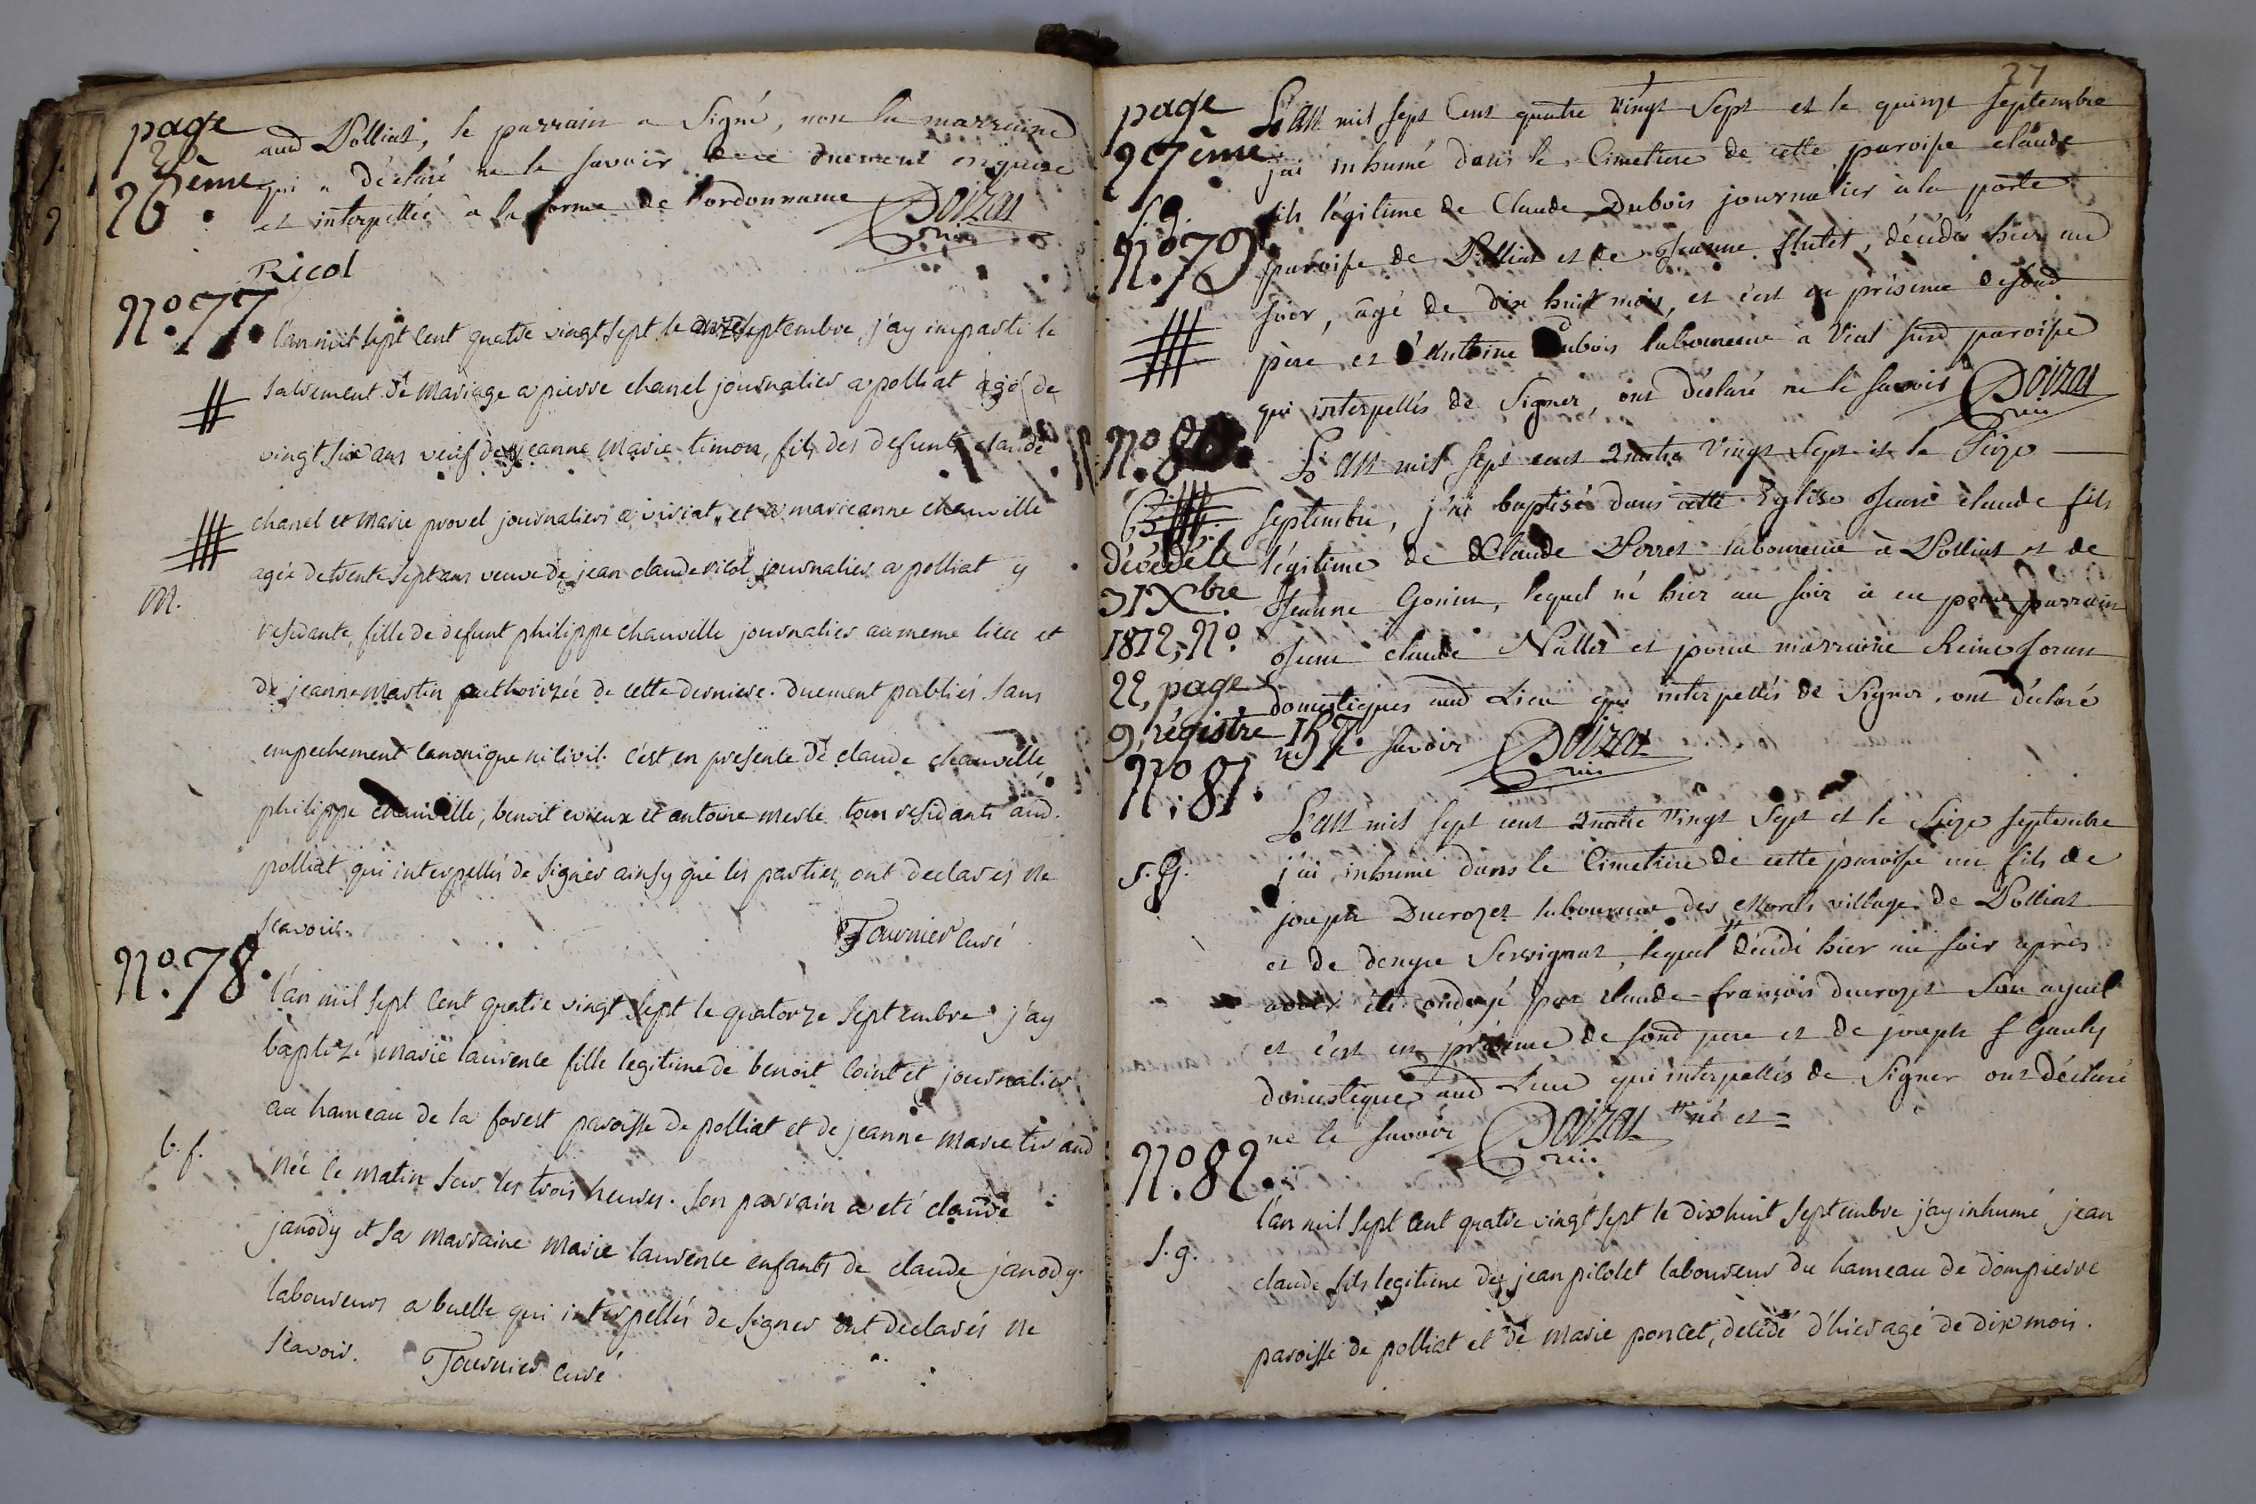 page
26ème
aud Polliat, le parrain a signé, non la marraine
qui a déclaré ne le savoir de ce duement enquise
et interpellée à la forme de l'ordonnance Doizat
vic.
Ricol
N.º 77.
l'an mil sept cent quatre vingt sept le onze septembre, j'ay imparti le
sacrement de mariage a pierre chanel journalier a polliat agé de
vingt six ans veuf de jeanne marie timon, fils des defunts claude
chanel et marie provel journaliers a viriat, et a marieanne chauville
agée de trente sept ans veuve de jean claude ricol journalier a polliat y
m.
residante, fille de defunt philippe chauville journalier au meme lieu et
de jeanne martin authorizée de cette derniere. duement publiés sans
empechement canonique ni civil. c'est en presence de claude chauville
philippe chauville, benoit evieux et antoine merle tous residants aud.
polliat qui interpellés de signer ainsy que les parties ont declarés ne
scavoir.
Tournier curé
N.º 78.
l'an mil sept cent quatre vingt sept le quatorze septembre j'ay
baptizé marie laurence fille legitime de benoit cointet journalier
au hameau de la forest paroisse de polliat et de jeanne marie tiraud
b. f.
née ce matin sur les trois heures. son parrain a eté claude
janody et sa marraine marie laurence enfants de claude janody
laboureurs a buelle qui interpellés de signer ont declarés ne
scavoir. Tournier curé
27
page
27ème
L'an mil sept cent quatre vingt sept et le quinze septembre
j'ai inhumé dans le cimetiere de cette paroisse claude
s. g.
fils légitime de Claude Dubois journalier à la porte
N.º 79.
paroisse de Polliat et de Jeanne flutet, décédé hier au
soir, âgé de dix huit mois, et c'est en présence desond
père et d'Antoine Dubois laboureur a Vial susd paroisse
qui interpellés de signer, ont déclaré ne le savoir Doizat
vic.
N.º 80.
L'an mil sept cent quatre vingt sept et le seize
septembre, j'ai baptisé dans cette Eglise Jean claude fils
décédé le
légitime de Claude Perret laboureur à Polliat et de
9bre
Jeanne Gonin, lequel né hier au soir a eu pour parrain
1812, N.º
Jean claude Nallet et pour marraine Reine foran
22, page
domestiques aud Lieu qui interpellés de signer, ont déclaré
9, régistre 157.
ne le savoir Doizat
vic.
N.º 81.
L'an mil sept cent quatre vingt sept et le seize septembre
s. g.
j'ai inhumé dans le cimetiere de cette paroise un fils de
joseph Ducrozet laboureur des Morels village de Polliat
et de denyse Servignat, lequel décédé hier au soir après
avoir été ondoyé par claude-françois ducrozet son ayeul
et c'est en présence de sond pere et de joseph
domestique aud Lieu qui interpellés de signer ont déclaré
ne le savoir Doizat né et =
vic.
N.º 82.
l'an mil sept cent quatre vingt sept le dix huit septembre j'ay inhumé jean
s. g.
claude fils legitime de jean pilolet laboureur du hameau de dompierre
paroisse de polliat et de marie poncet, decedé d'hier agé de dix mois.